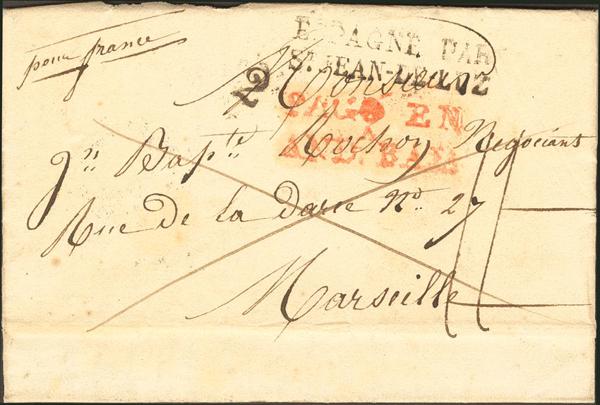 pour france
ESPAGNE PAR
ST JEAN-DE-LUZ
Monsieur
PAGO EN
AND. BAXA
Jn Bapte Rochon Négociant
Rue De la Darce No 27
Marseille